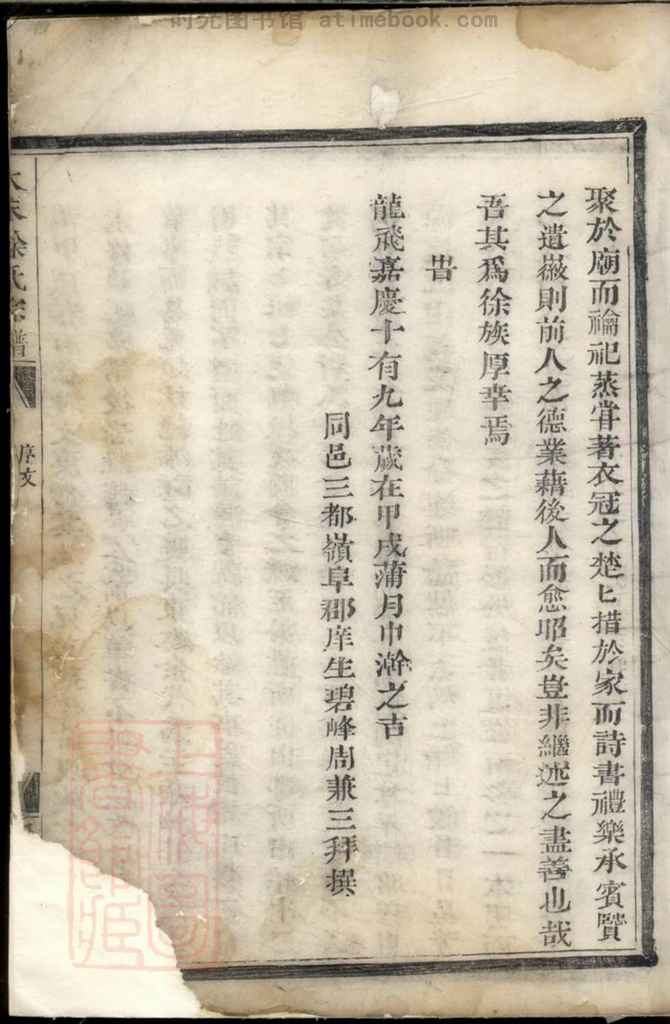 时光图书馆 atimebook.com
聚於廟而禴祀蒸嘗著衣冠之楚匕措於家而詩書禮樂承賓賢
之遺嶶則前人之德業藉後人而愈昭矣豈非繼述之盡善也哉
吾其爲徐族厚幸焉
旹
龍飛嘉慶十有九年歲在甲戌蒲月中澣之吉
同邑三都嶺阜郡庠生碧峰周兼三拜撰
徐氏宗譜
序文
上海圖書館藏